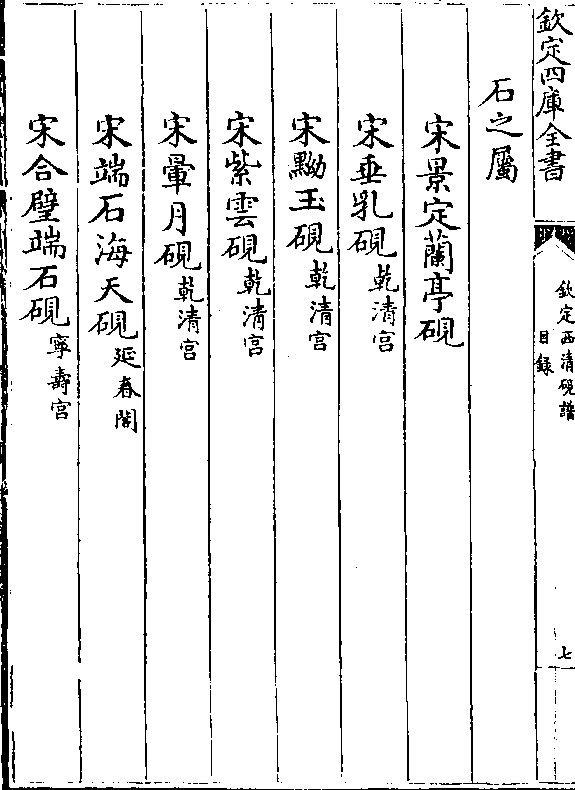 欽定四庫全書
欽定西清硯譜
目録
七
石之屬
宋景定蘭亭硯
宋垂乳硯乾清宮
宋黝玉硯乾清宮
宋紫雲硯乾清宮
宋暈月硯乾清宮
宋端石海天硯延春閣
宋合璧端石硯寧壽宮